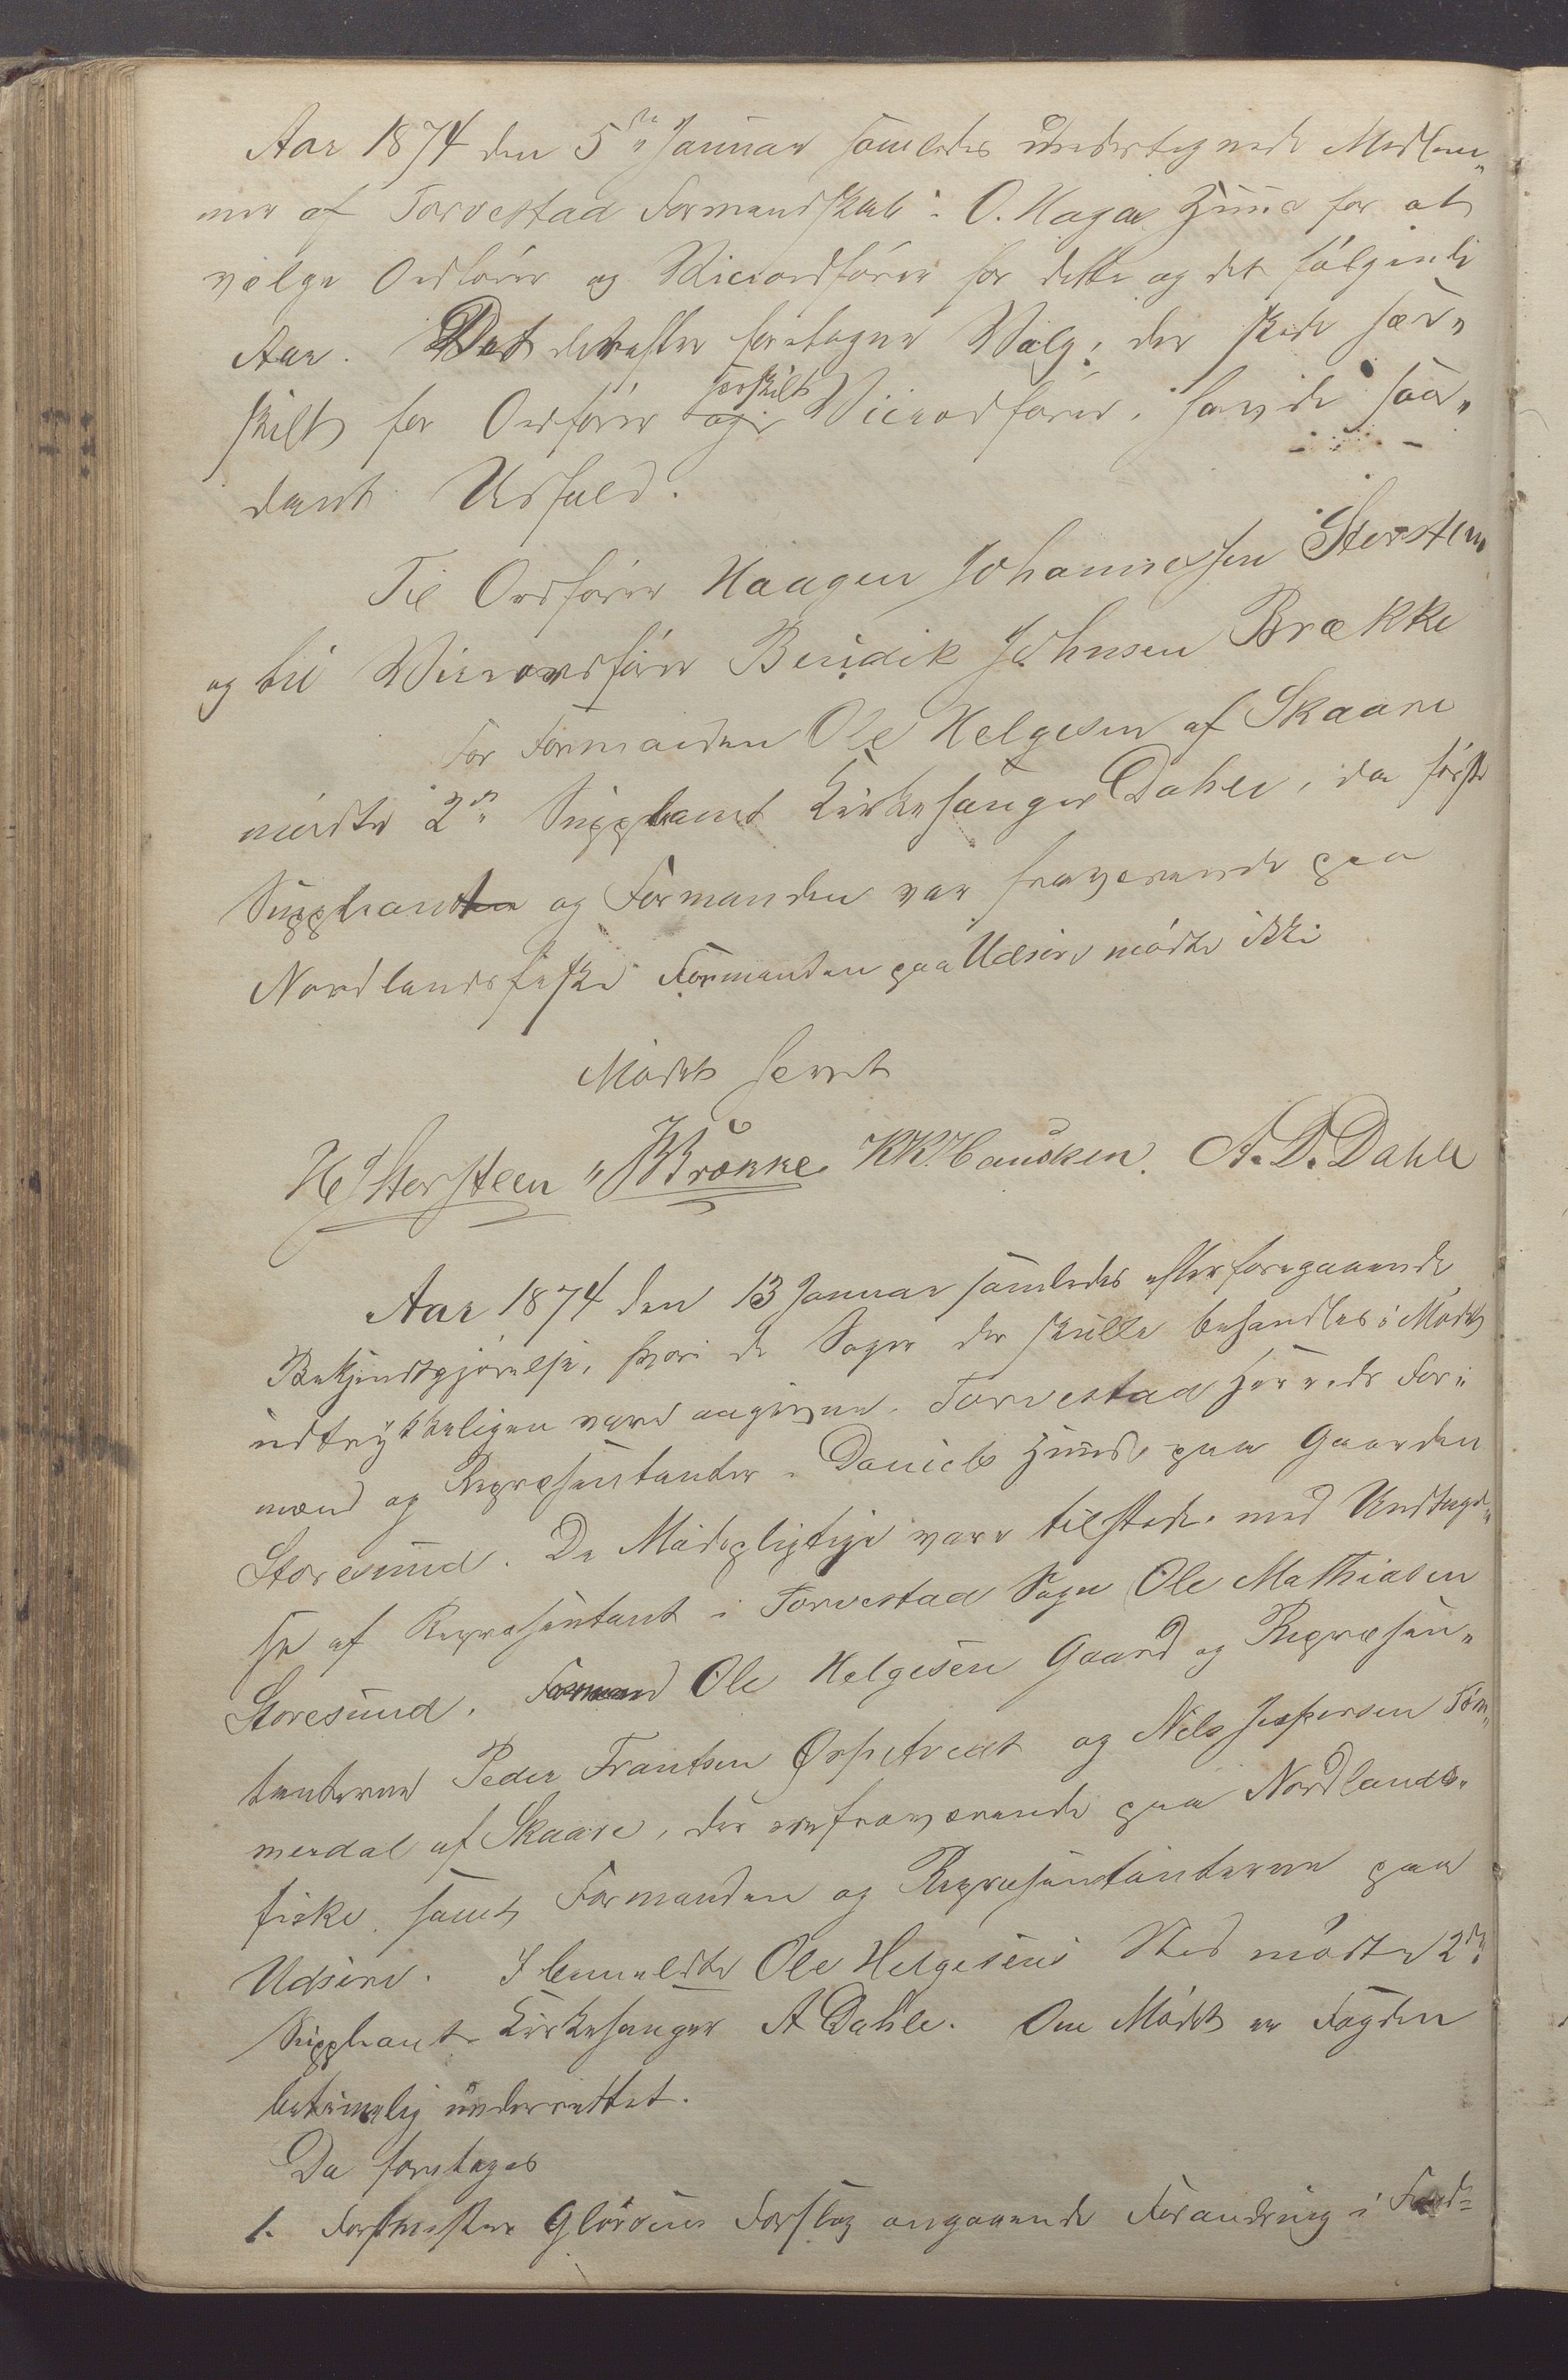 Aar 1874 den 5te Januar samledes undertegnede Medlem„
mer af Torvestad Formandskab i O. Haga Huus for at
vælge Ordfører og Viceordfører for dette og det følgende
Aar. Det derefter foretagne Valg, der skede sær„
skilt for Ordfører og særskilt Viceordfører, havde saa„
dant Udfald.
Til Ordfører Haagen Johannessen Storsteen
og til Viceordfører Bendik Johnsen Brække
For Formanden Ole Helgesen af Skaare
mødte 2den Suppleant Kirkesanger Dahle, da første
Suppleant og Formanden var fraværende paa
Nordlandsfiske Formanden paa Udsire mødte ikke
Mødet hævet
HJStorsteen BJBrække KKHausken. A. D. Dahle
Aar 1874 den 13 Januar samledes efter foregaaende
Bekjendtgjørelse, hvori de Sager der skulle behandles i Mødet
udtrykkeligen vare angivne. Torvestad Herreds For„
mænd og Repræsentanter i Daniels Huus paa Gaarden
Storesund. De Mødepligtige vare tilstede med Undtagel„
se af Repræsentant i Torvestad Sogn Ole Mathiasen
Storesund. Formand Ole Helgesen Gaard og Repræsen„
tanterne Peder Frantsen Ørpetvedt og Nels Jespersen Tøm„
merdal af Skaare, der ere fraværende paa Nordlands„
fiske samt Formanden og Repræsentanterne paa
Udsire. I bemeldte Ole Helgesens Sted mødte 2den
Suppleant Kirkesanger A Dahle. Om Mødet er Fogden
betimelig underrettet.
Da foretoges
1. Forstmester Gløersens Forslag angaaende Forandring i Fred=